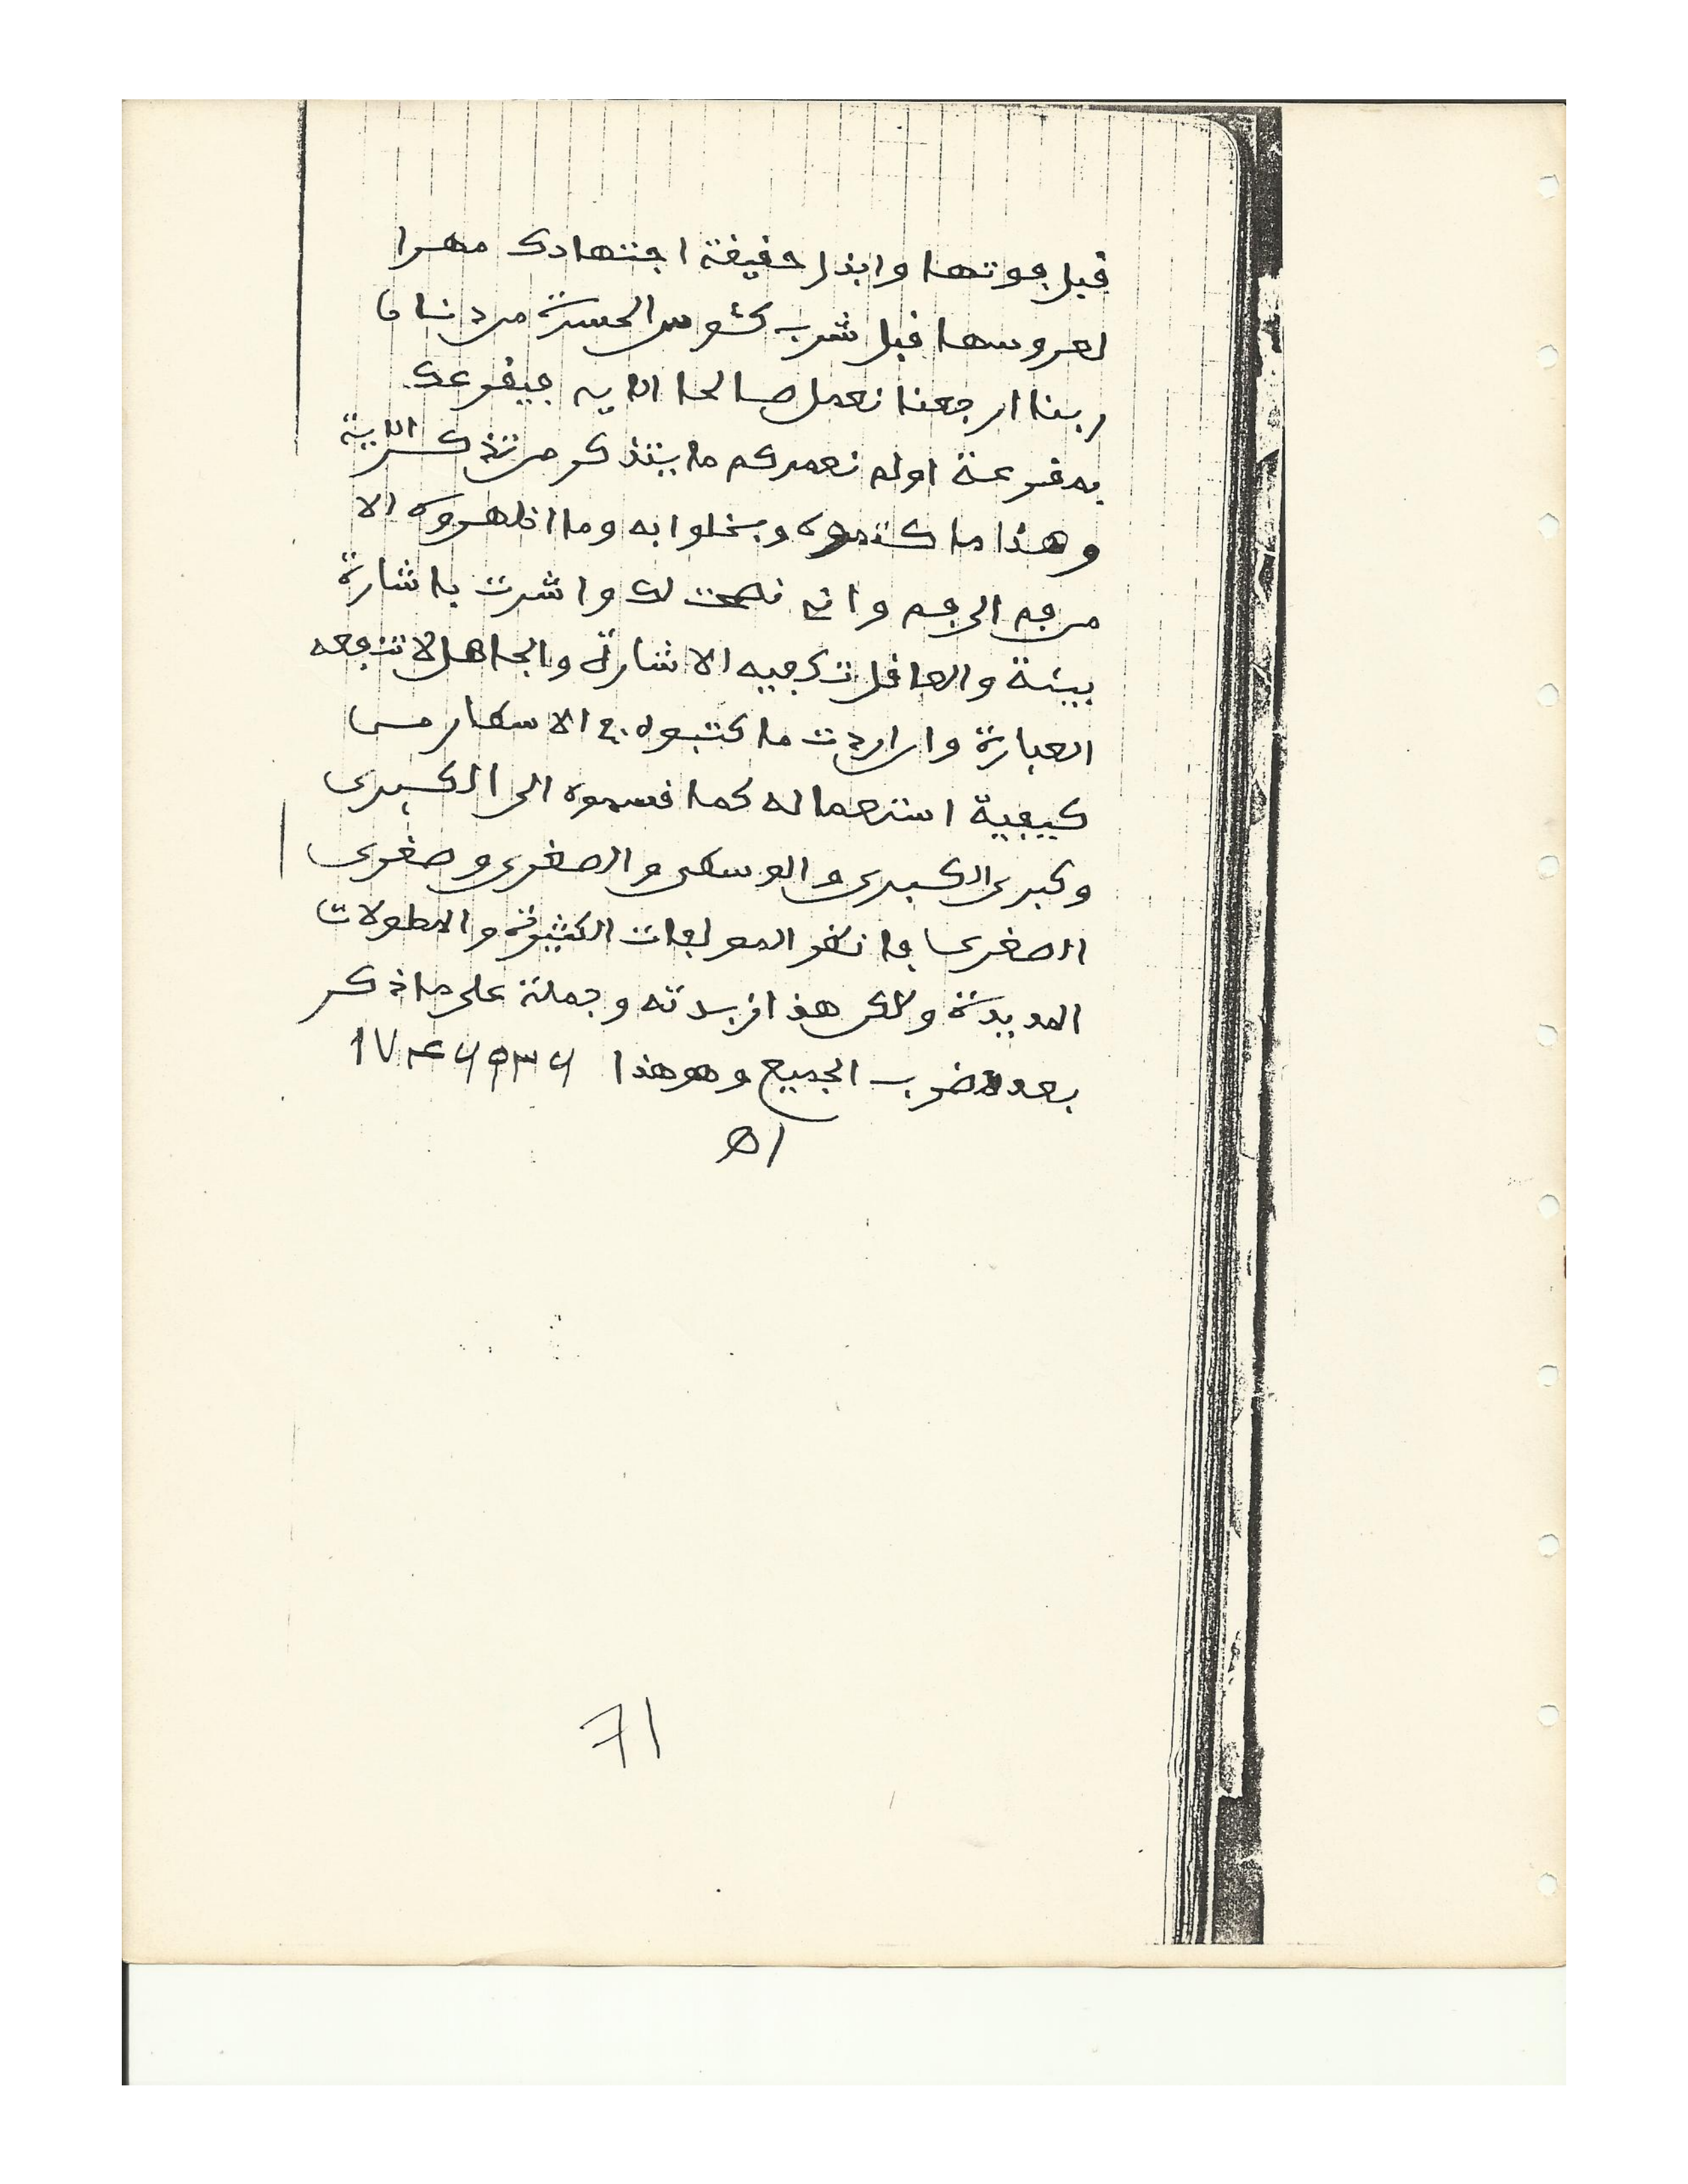 قبل فوتها وابذل حقيقة اجتهادك مهرا
لعروسها قبل شرب كئوس الحسرة من دنان
ربنا ارجعنا نعمل صالحا الايه فيقرعك
بمقرعة اولم نعمركم ما يتذكر من تذكر الاية
وهذا ما كتموه وبخلوا به وما اظهروه الا
من فم الى فم واني نصحت لك واشرت باشارة
بينة والعاقل تكفيه الاشارة والجاهل لا تنفعه
العبارة وان اردت ما كتبوه في الاسطار من
كيفية استعماله كما قسموه الى الكبرى
وكبرى الكبرى والوسطى والصغرى وصغرى
الصغرى فانظر المولفات الكثيرة والمطولات
المديدة ولكن هذا زبدته وجملة على ماذكر
بعدد ضرب الجميع وهو هذا
اه
71